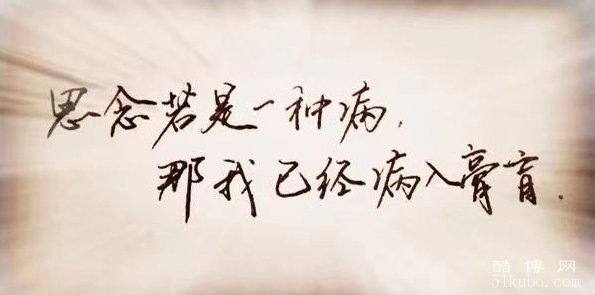 思念若是一种病,
那我已经病入膏肓.
酷博网
51kubo.com